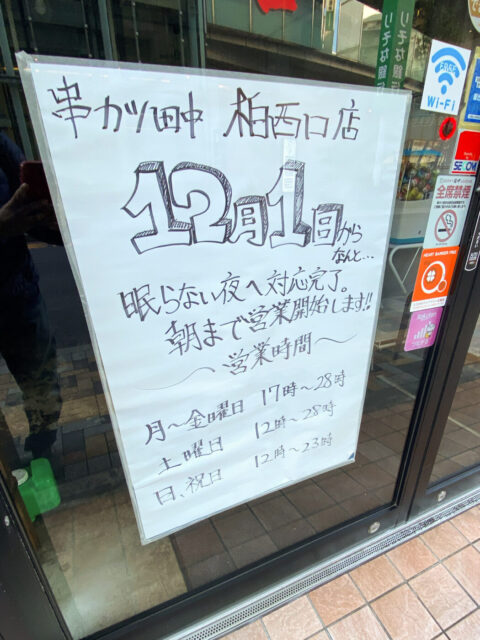 串カツ田中 柏西口店
12月1日から
なんと...
眠らない夜へ対応完了。
朝まで営業開始します!!
〜営業時間〜
月〜金曜日 17時〜28時
土曜日 12時〜28時
日、祝日 12時〜23時
りそな銀
りそな銀行
FREE
Wi-Fi
全席禁煙